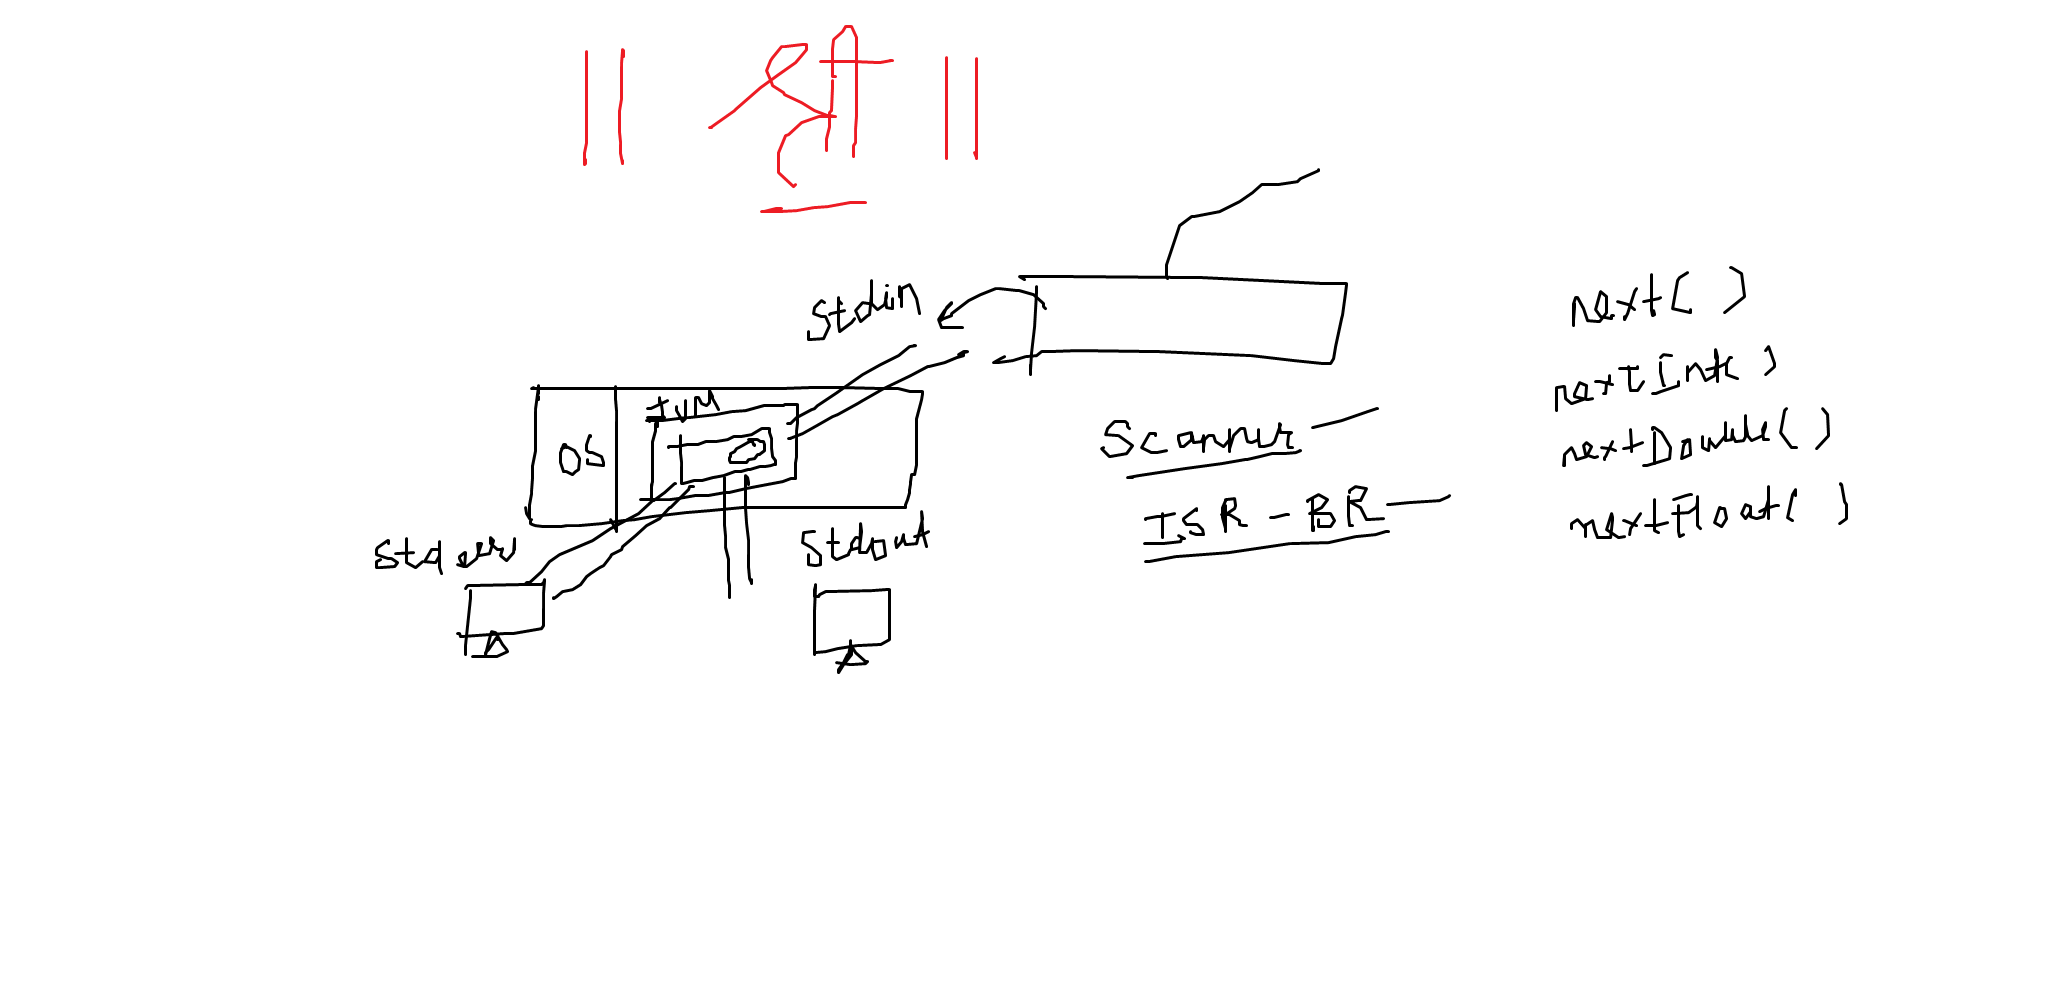 || श्री ||
Stdin
JVM
OS
Stderr
Stdout
Scanner
ISR - BR
next( )
nextInt( )
nextDouble( )
nextFloat( )